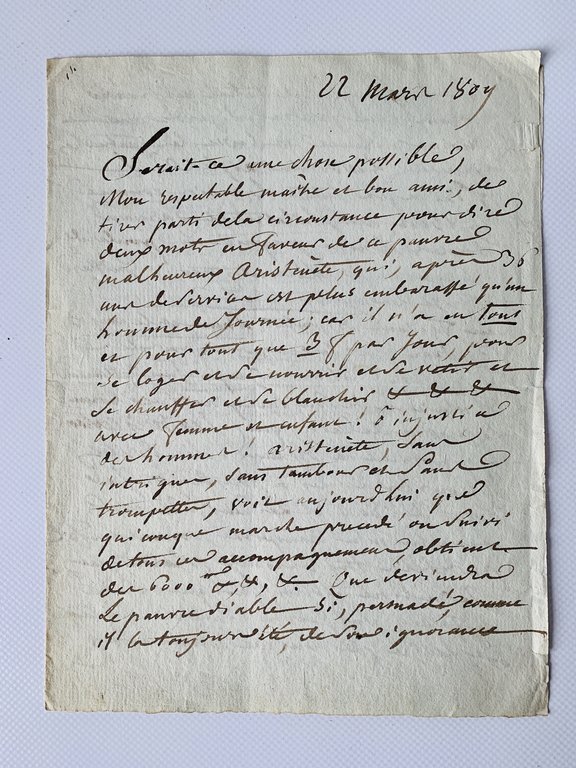 22 Mars 1809
Serait-ce une chose possible,
Mon respectable maître et bon ami, de
tirer parti de la circonstance pour dire
deux mots en faveur de ce pauvre
malheureux Aristenète, qui, après 30
ans de service est plus embarassé qu'un
homme de Journée; car il n'a en tout
et pour tout que 3 f par Jour, pour
se loger et se nourrir et se vétir et
se chauffer et se blanchir & & &
avec femme et enfant! ô injustice
des hommes! Aristenète, sans
intriguer, sans tambour et sans
trompette, voit aujourd'hui que
quiconque marche precedé ou suivi
de tous ces accompagnemens, obtient
des 6000 &, &, &. Que deviendra
Le pauvre diable si, persuadé, comme
il l'a toujours été, de son ignorance